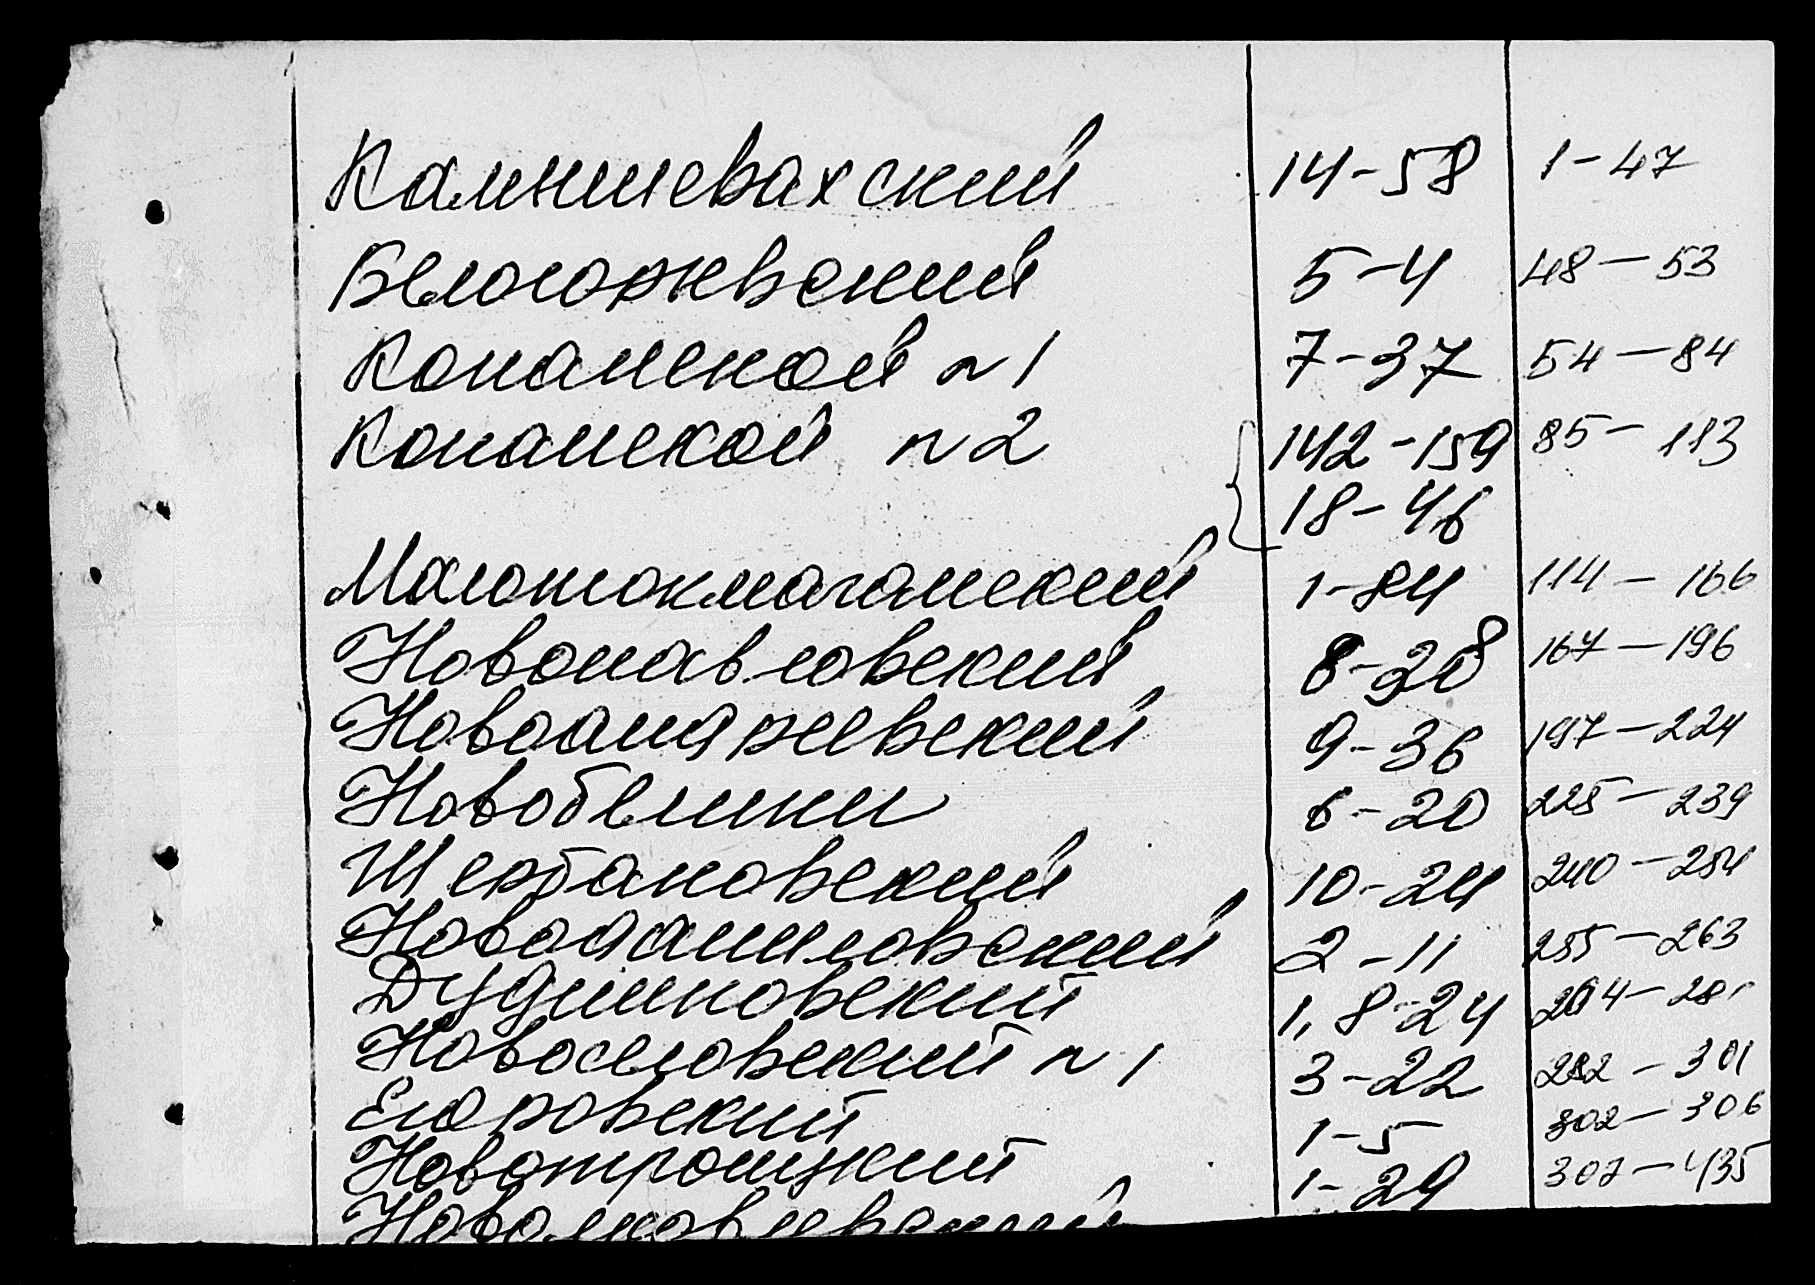 Камышевахский 14-58 1-47
Белогоркевский 5-4 48-53
Копанской n1 7-37 54-84
Копанской n2 142-159 85-113
18-46
Малотокмачанский 1-84 114-166
Новопавловский 8-28 167-196
Новоандреевский 9-36 197-224
Новобелики 6-20 225-239
Щербаковский 10-24 240-254
Новоданиловский 2-11 255-263
Дудниковский 1, 8-24 264-281
Новоселовский n1 3-22 282-301
Егоровский 1-5 302-306
Новотроицкий 1-29 307-435